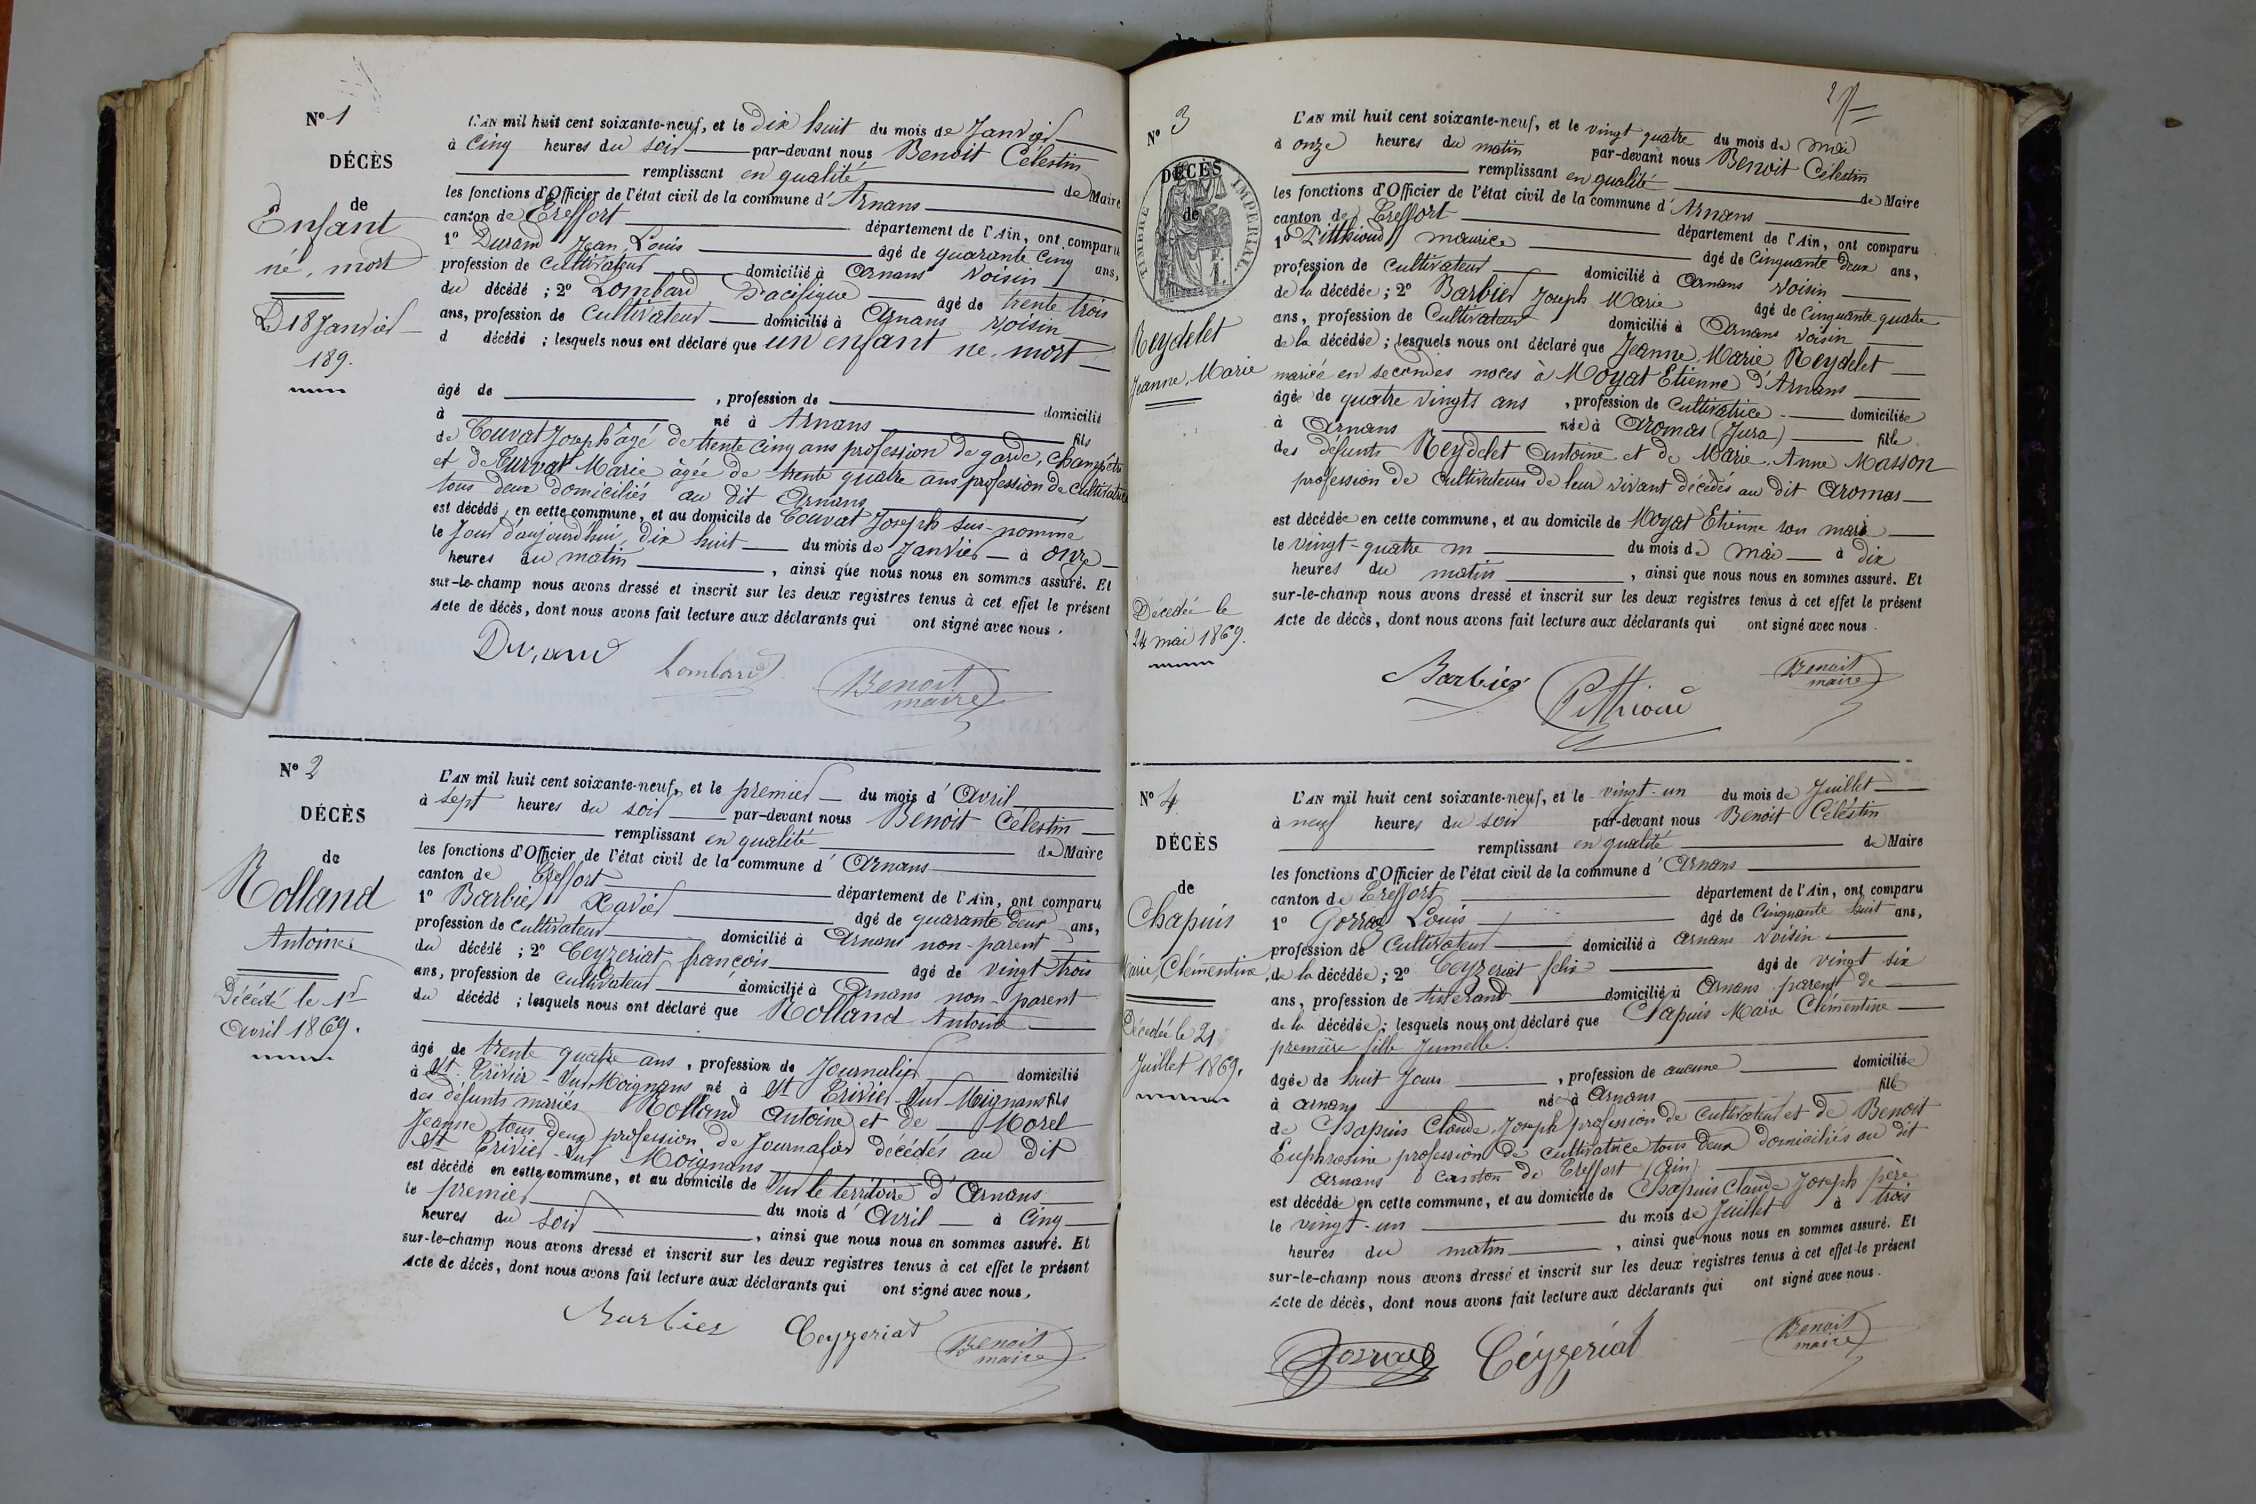 Nº 1
DÉCÈS
de
Enfant
né, mort
D 18 Janvier
189.
L'AN mil huit cent soixante-neuf, et le dix huit du mois de Janvier
à cinq heures du soir par-devant nous Benoit Célestin
remplissant en qualité de Maire
les fonctions d'Officier de l'état civil de la commune d'Arnans
canton de Treffort département de l'Ain, ont comparu
1º Durand Jean Louis âgé de quarante cinq ans,
profession de cultivateur domicilié à Arnans voisin
du décédé ; 2º Lombard Pacifique âgé de trente trois
ans, profession de cultivateur domicilié à Arnans voisin
d décédé ; lesquels nous ont déclaré que un enfant né, mort
âgé de , profession de domicilié
à né à Arnans fils
de Couvat Joseph âgé de trente cinq ans profession de garde, champêtre
et de Curvat Marie âgée de trente quatre ans profession de cultivatrice
tous deux domiciliés au dit Arnans
est décédé en cette commune, et au domicile de Couvat Joseph sus-nommé
le Jour d'aujourd'hui, dix huit du mois de Janvier à onze
heures du matin , ainsi que nous nous en sommes assuré. Et
sur-le-champ nous avons dressé et inscrit sur les deux registres tenus à cet effet le présent
Acte de décès, dont nous avons fait lecture aux déclarants qui ont signé avec nous.
Durand Lombard Benoit
maire
Nº 2
DÉCÈS
de
Rolland
Antoine
Décédé le 1er
Avril 1869.
L'AN mil huit cent soixante-neuf, et le premier du mois d'Avril
à sept heures du soir par-devant nous Benoit Célestin
remplissant en qualité de Maire
les fonctions d'Officier de l'état civil de la commune d'Arnans
canton de Treffort département de l'Ain, ont comparu
1º Barbier Xavier âgé de quarante deux ans,
profession de cultivateur domicilié à Arnans non-parent
du décédé ; 2º Ceyzeriat françois âgé de vingt trois
ans, profession de cultivateur domicilié à Arnans non-parent
du décédé ; lesquels nous ont déclaré que Rolland Antoine
âgé de trente quatre ans , profession de Journalier domicilié
à St Trivier-Sur-Moignans né à St Trivier-Sur-Moignans fils
des défunts mariés Rolland Antoine et de Morel
Jeanne tous deux profession de Journalier décédés au dit
St Trivier-Sur Moignans
est décédé en cette commune, et au domicile de Sur le territoire d'Arnans
le premier du mois d'Avril à cinq
heures du soir , ainsi que nous nous en sommes assuré. Et
sur-le-champ nous avons dressé et inscrit sur les deux registres tenus à cet effet le présent
Acte de décès, dont nous avons fait lecture aux déclarants qui ont signé avec nous.
Barbier Ceyzeriat Benoit
maire
Nº 3
DÉCÈS
de
TIMBRE IMPÉRIAL
Reydelet
Jeanne, Marie
Décédée le
24 mai 1869.
L'AN mil huit cent soixante-neuf, et le vingt quatre du mois de mai
à onze heures du matin par-devant nous Benoit Célestin
remplissant en qualité de Maire
les fonctions d'Officier de l'état civil de la commune d'Arnans
canton de Treffort département de l'Ain, ont comparu
1º Pitthioud maurice âgé de cinquante deux ans,
profession de cultivateur domicilié à Arnans voisin
de la décédée ; 2º Barbier Joseph Marie âgé de cinquante quatre
ans, profession de cultivateur domicilié à Arnans voisin
de la décédée ; lesquels nous ont déclaré que Jeanne, Marie Reydelet
mariée en secondes noces à Moyat Etienne d'Arnans
âgée de quatre vingts ans , profession de cultivatrice domiciliée
à Arnans née à Aromas (Jura) fille
des défunts Reydelet Antoine et de Marie, Anne Masson
profession de cultivateurs de leur vivant décédés au dit Aromas
est décédée en cette commune, et au domicile de Moyat Etienne son mari
le vingt-quatre m du mois de mai à dix
heures du matin , ainsi que nous nous en sommes assuré. Et
sur-le-champ nous avons dressé et inscrit sur les deux registres tenus à cet effet le présent
Acte de décès, dont nous avons fait lecture aux déclarants qui ont signé avec nous.
Barbier Pitthioud Benoit
maire
Nº 4
DÉCÈS
de
Chapuis
Marie Clémentine
Décédée le 21
Juillet 1869.
L'AN mil huit cent soixante-neuf, et le vingt-un du mois de Juillet
à neuf heures du soir par-devant nous Benoit Célestin
remplissant en qualité de Maire
les fonctions d'Officier de l'état civil de la commune d'Arnans
canton de Treffort département de l'Ain, ont comparu
1º Louis âgé de cinquante huit ans,
profession de cultivateur domicilié à Arnans voisin
de la décédée ; 2º Ceyzeriat felix âgé de vingt six
ans, profession de tisserand domicilié à Arnans parent de
de la décédée ; lesquels nous ont déclaré que Chapuis Marie Clémentine
première fille Jumelle.
âgée de huit Jours , profession de aucune domiciliée
à Arnans née à Arnans fille
de Chapuis Claude, Joseph profession de cultivateur et de Benoit
Euphrosine profession de cultivatrice tous deux domiciliés au dit
Arnans canton de Treffort (Ain)
est décédée en cette commune, et au domicile de Chapuis Claude Joseph père
le vingt-un du mois de Juillet à trois
heures du matin , ainsi que nous nous en sommes assuré. Et
sur-le-champ nous avons dressé et inscrit sur les deux registres tenus à cet effet le présent
Acte de décès, dont nous avons fait lecture aux déclarants qui ont signé avec nous.
Céyzeriat Benoit
maire